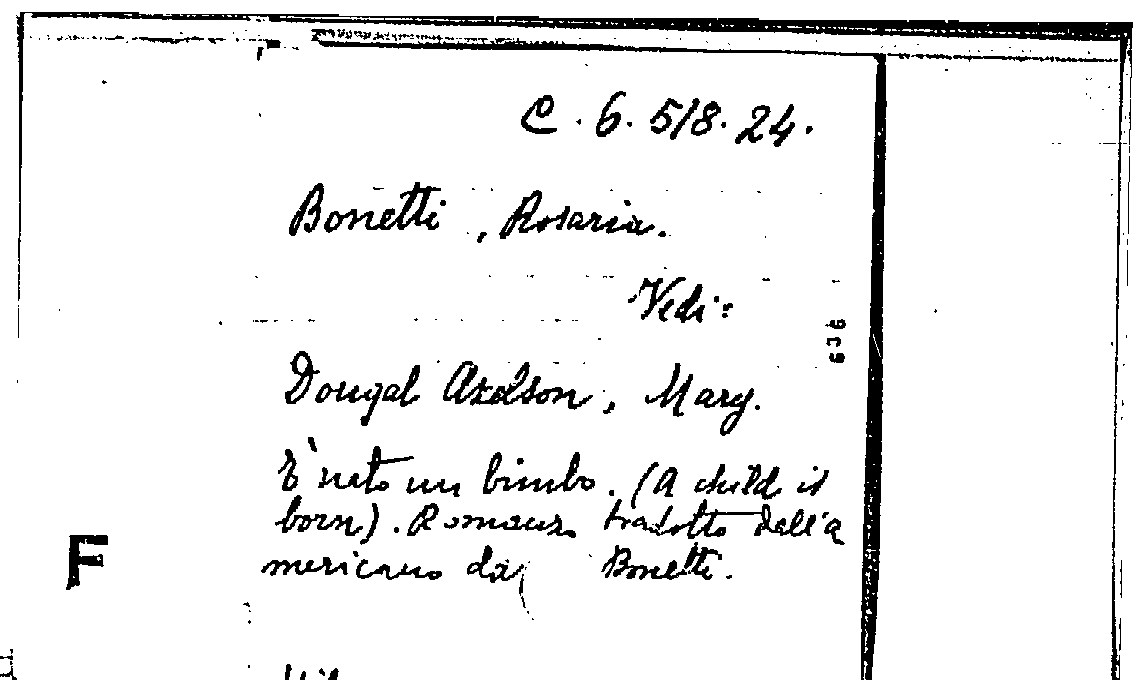 C. 6. 518. 24.
Bonetti, Rosaria.
Vedi:
636
Dougal Axelson, Mary.
E' nato un bimbo. (A child is
born). Romanzo tradotto dall'a
mericano da Bonetti.
F